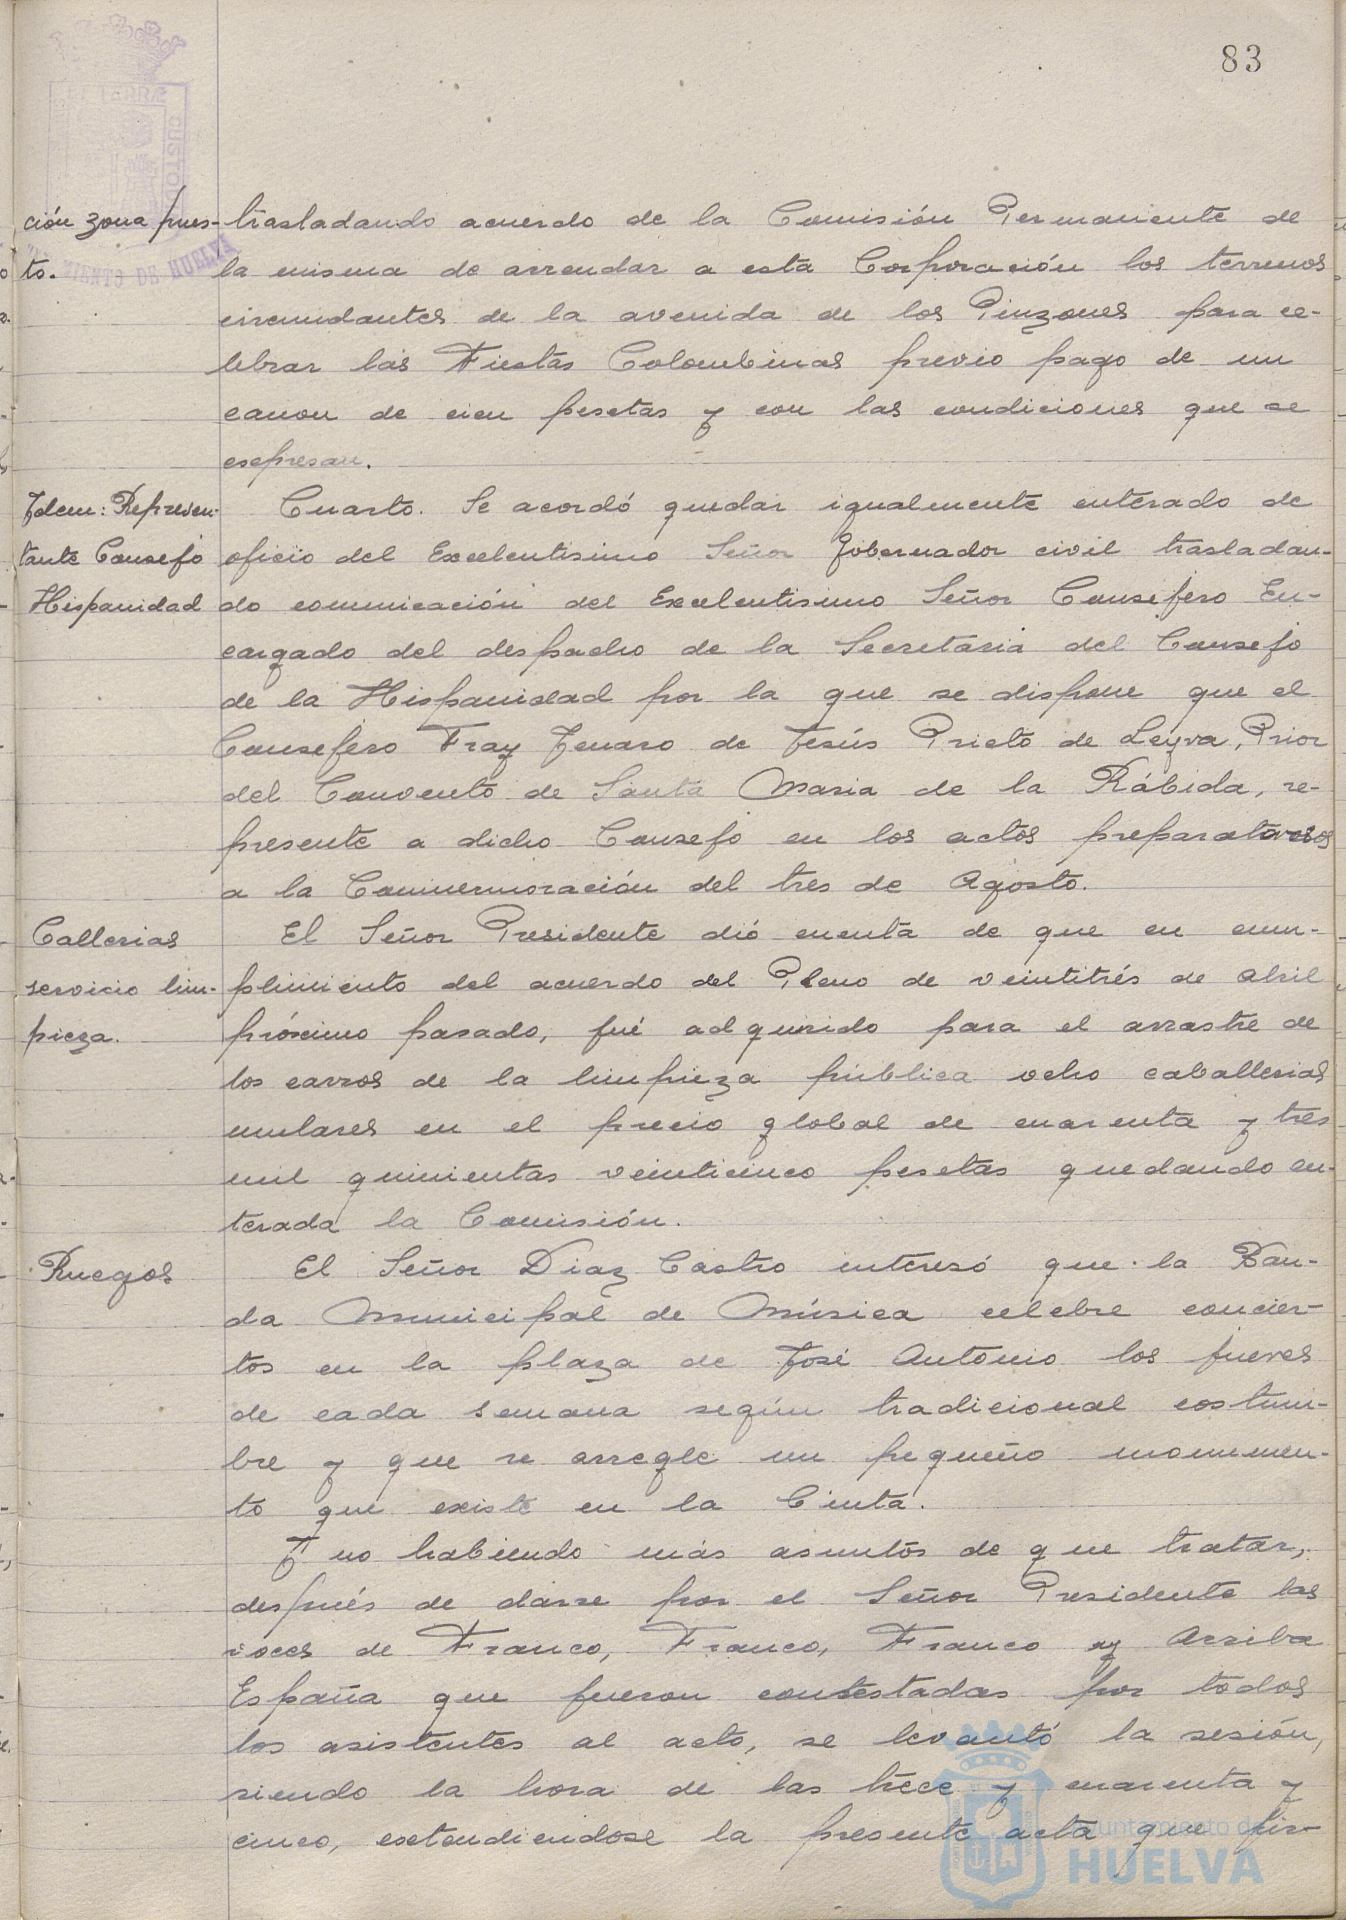 83
ET TERRÆ
CUSTO
MIENTO DE HUELVA
ción zona pues-
to.
trasladando acuerdo de la Comisión Permaniente de
la misma de arrendar a esta Corporación los terrenos
circundantes de la avenida de los Pinzones para ce-
lebrar las Fiestas Colombinas previo pago de un
canon de cien pesetas y con las condiciones que se
expresan.
Idem: Represen-
tante Consejo
Hispanidad
Cuarto. Se acordó quedar igualmente enterado de
oficio del Excelentisimo Señor Gobernador civil trasladan-
do comunicación del Excelentisimo Señor Consejero En-
cargado del despacho de la Secretaria del Consejo
de la Hispanidad por la que se dispone que el
Consejero Fray Jenaro de Jesús Prieto de Leyva, Prior
del Convento de Santa Maria de la Rábida, re-
presente a dicho Consejo en los actos preparatorios
a la Conmemoración del tres de Agosto.
Callerias
servicio lim-
pieza.
El Señor Presidente dió cuenta de que en cum-
plimiento del acuerdo del Pleno de veintitrés de abril
próximo pasado, fué adquirido para el arrastre de
los carros de la limpieza pública ocho caballerias
mulares en el precio global de cuarenta y tres
mil quinientas veinticinco pesetas quedando en-
terada la Comisión.
Ruegos
El Señor Diaz Castro interesó que la Ban-
da Municipal de Música celebre concier-
tos en la plaza de José Antonio los jueves
de cada semana según tradicional costum-
bre y que se arregle un pequeño monumen-
to que existe en la Cinta.
Y no habiendo más asuntos de que tratar,
después de darse por el Señor Presidente las
voces de Franco, Franco, Franco y Arriba
España que fueron contestadas por todos
los asistentes al acto, se levantó la sesión,
siendo la hora de las trece y cuarenta y
cinco, extendiendose la presente acta que fir-
Ayuntamiento de
HUELVA